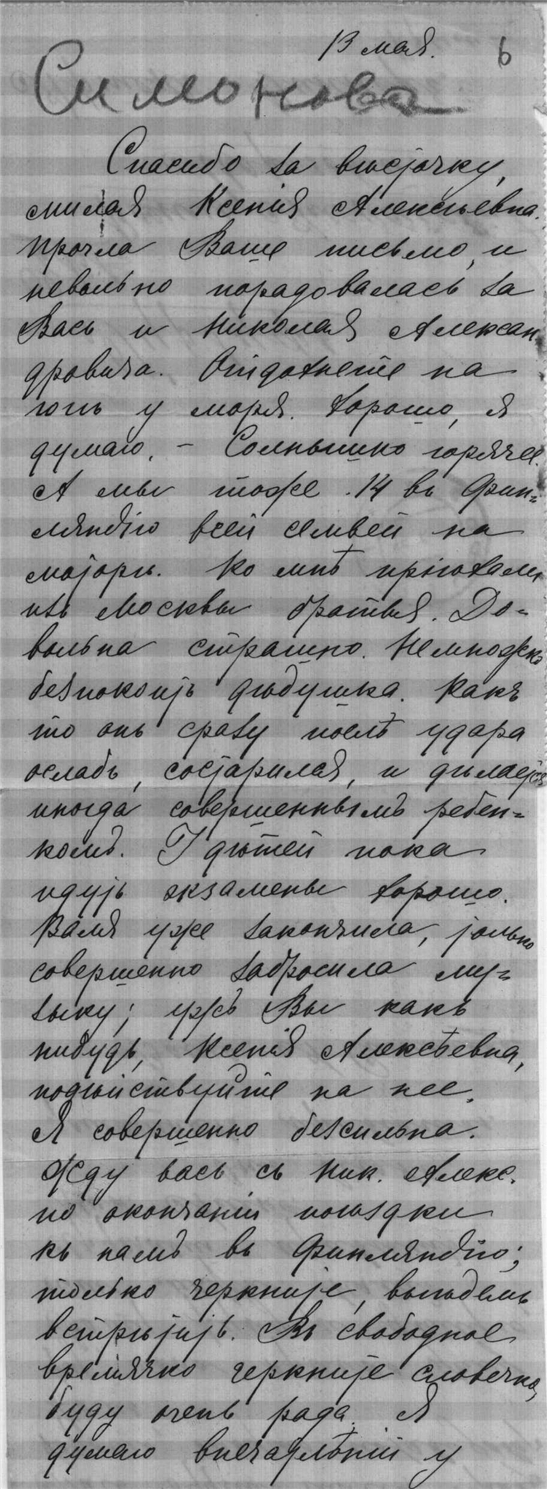 13 мая.
6
Симонова
Спасибо за высточку,
милая Ксенія Алексѣевна.
Прочла Ваше письмо, и
невольно порадовалась за
Васъ и Николая Алексан
дровича. Отдохнете на
югѣ у моря. Хорошо, я
думаю. – Солнышко горячее.
А мы тоже 14 въ Фин=
ляндію всей семьей на
Ко мнѣ пріѣхали
изъ Москвы братья. До=
вольна страшно. Немножко
безпокоитъ дѣдушка. Какъ
то онъ сразу послѣ удара
ослабъ, состарился, и дѣлается
иногда совершеннымъ ребен=
комъ. У дѣтей пока
идутъ экзамены хорошо.
Валя уже закончила, только
совершенно забросила му=
зыку; ужъ Вы какъ
нибудь, Ксенія Алексѣевна,
подѣйствуйте на нее.
Я совершенно безсильна.
Жду васъ съ Ник. Алекс.
по окончаніи поѣздки
къ намъ въ Финляндію;
только черкните, выѣдемъ
встрѣтить. Въ свободное
времячко черкните словечко,
буду очень рада. Я
думаю впечатлѣній у